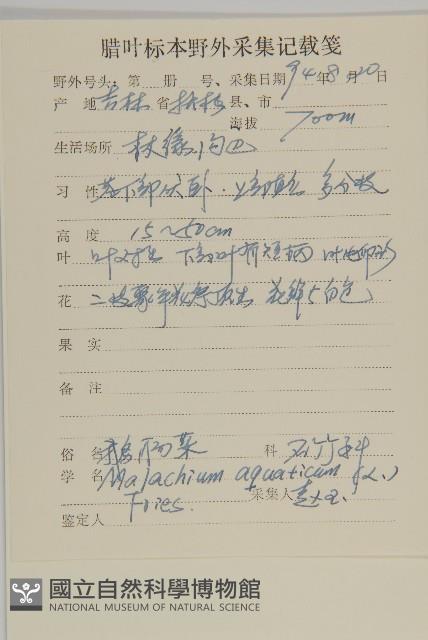 腊叶标本野外采集记载笺
野外号头：第 册 号、采集日期94年8月20日
产 地 吉林省抚松县、市
海拔 700m
生活场所 林缘、沟边
习 性 茎下部伏卧 上部直立 多分枝
高 度 15~50cm
叶 叶对生 下部叶有短柄 叶卵形
花 二歧聚伞花序顶生 花瓣5白色
果 实
备 注
俗 名 鹅肠菜 科 石竹科
学 名 Malachium aquaticum (L.)
Fries. 采集人
鉴定人
國立自然科學博物館
NATIONAL MUSEUM OF NATURAL SCIENCE